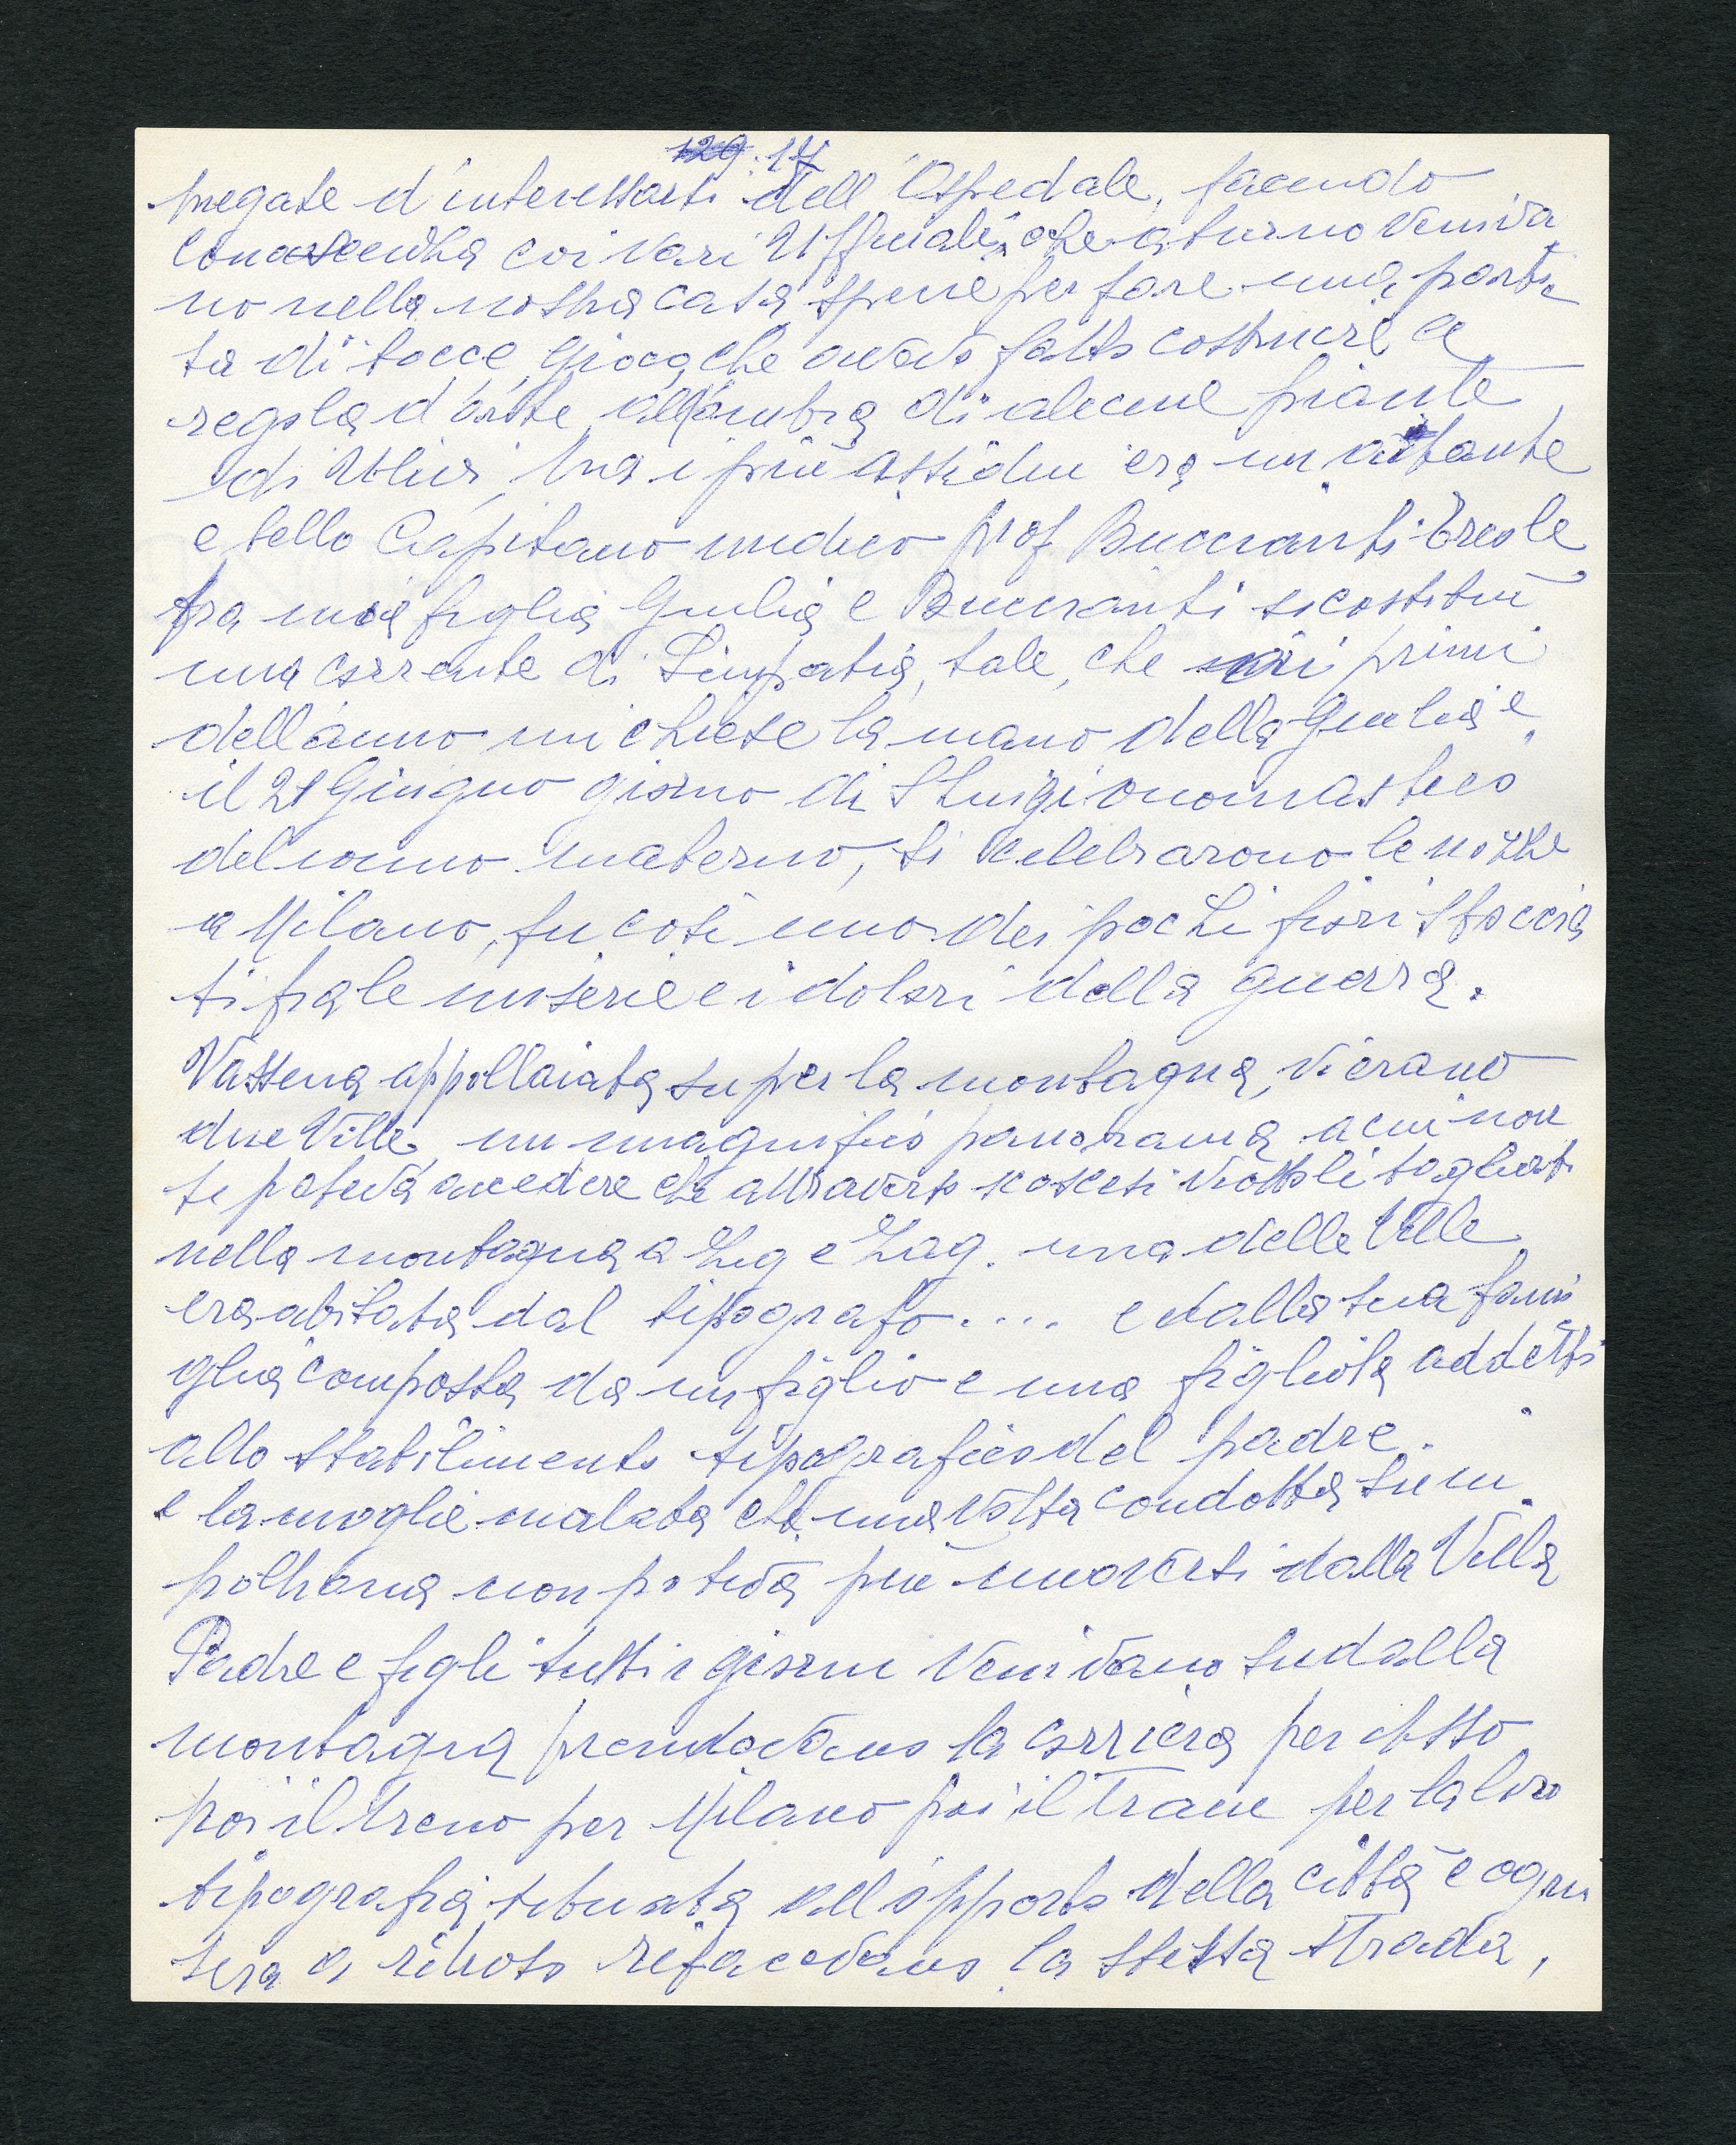 129. 14
pregate d'interessarsi dell'Ospedale, facendo
conoscenza coi vari Ufficiali, che a turno veniva
no nella nostra casa spesse per fare una parti
ta di bocce, gioco, che avevo fatto costruire a
regola d'arte all'ombra di alcune piante
di Ulivi, ma i più assidui era un aitante
e bello Capitano medico prof Buccianti Ercole
fra mia figlia Giulia e Buccianti si costituì
una corrente di Simpatia, tale, che ai primi
dell'anno mi chiese la mano della Giulia e
il 21 Giugno giorno di S Luigi onomastico
del nonno materno, si celebrarono le nozze
a Milano, fu così uno dei pochi fiori sboccia
ti fra le miserie e i dolori della guerra.
Vassena appollaiata su per la montagna, vi erano
due Ville, un magnifico panorama a cui non
si poteva accedere che attraverso scoscesi viottoli tagliati
nella montagna a Zig e Zag. una delle Ville
era abitata dal tipografo .... e dalla sua fami
glia composta da un figlio e una figliola addetti
allo stabilimento tipografico del padre.
e la moglie malata che una volta condotta su in
poltrona non poteva più muoversi dalla Villa
Padre e figli tutti i giorni venivano su dalla
montagna prendevano la corriera per Asso
poi il treno per Milano poi il tram per la loro
tipografia situata all'opposto della città e ogni
sera a ritroso rifacevano la stessa strada,